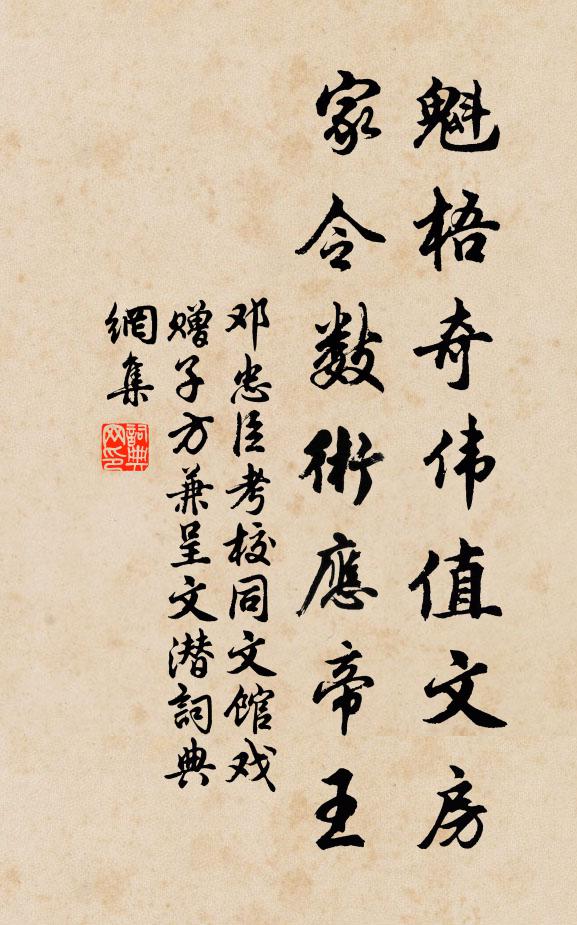 魁梧奇伟值文房
家令数術應帝王
邓忠臣考校同文馆戏
赠子方兼呈文潜詞典
網集
詞典
网印